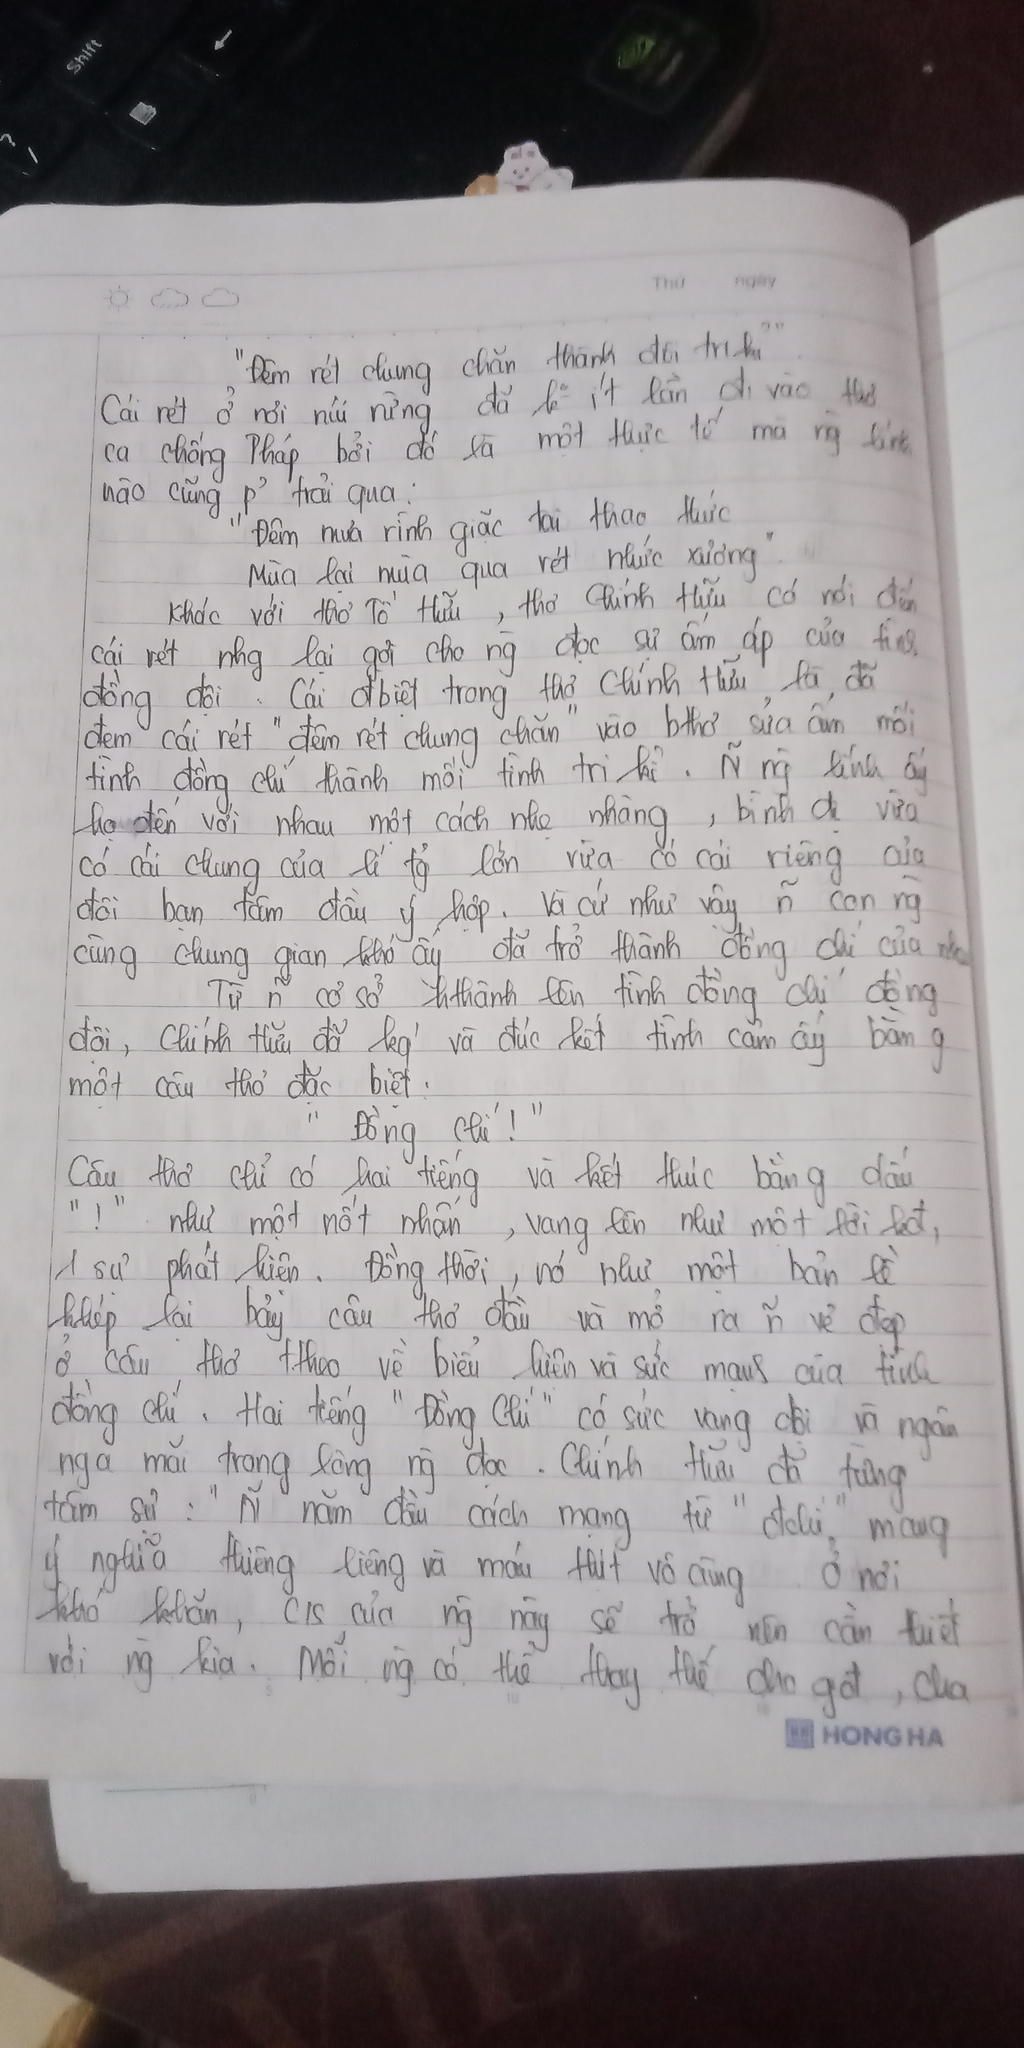 Shift
Thứ ngày
"Đêm rét chung chăn thành đôi tri kỉ"
Cái rét ở nơi núi rừng đã ít lần đi vào thơ
ca chống Pháp bởi đó là một thực tế mà ng lính
nào cũng p' trải qua:
"Đêm mưa rình giấc tai thao thức
Mùa lại mùa qua rét nhức xương".
Khác với thơ Tố Hữu, thơ Chính Hữu có nói đến
cái rét nhg lại gợi cho ng đọc sự ấm áp của tình
đồng đội. Cái đbiệt trong thơ Chính Hữu là, đã
đem cái rét "đêm rét chung chăn" vào bthơ sưa ấm mối
tình đồng chí thành mối tình tri kỉ. Ñ ng lính ấy
họ đến với nhau một cách nhẹ nhàng, bình dị vừa
có cái chung của lí tg lớn vừa có cái riêng của
đôi bạn tâm đầu ý hợp. Và cứ như vậy ñ con ng
cùng chung gian khó ấy đã trở thành đồng chí của nhau
Từ ñ cơ sở hthành lên tình đồng chí đồng
đội, Chính Hữu đã và đúc kết tình cảm ấy bằng
một câu thơ đặc biệt:
"Đồng chí!"
Câu thơ chỉ có hai tiếng và kết thúc bằng dấu
"!" như một nốt nhấn, vang lên như một lời
1 sự phát hiện. Đồng thời, nó như một bản lề
khép lại bảy câu thơ đầu và mở ra ñ vẻ đẹp
ở câu thơ ttheo về biểu hiện và sức mạnh của tình
đồng chí. Hai tiếng "Đồng Chí" có sức vang dội và ngân
nga mãi trong lòng ng đọc. Chính Hữu đã từng
tâm sự: "Ñ năm đầu cách mạng từ "đchí" mang
ý nghĩa thiêng liêng và máu thịt vô cùng Ở nơi
khó khăn, c/s của ng này sẽ trở nên cần thiết
với ng kia. Mỗi ng có thể thay thế cho gđ, cha
HONG HA